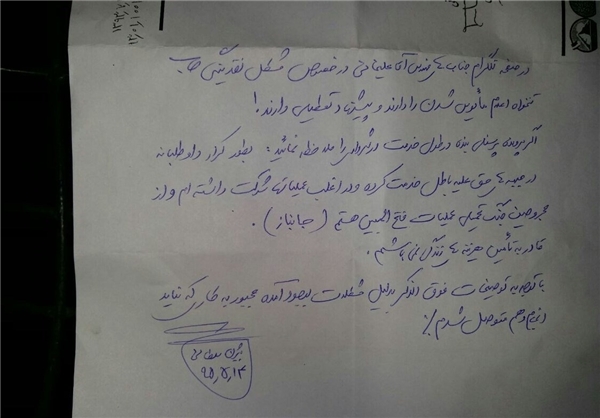 در صفحه تلگرام جناب مهندس آقا علیخانی در خصوص مشکل نقدینگی
تنخواه اعلام مأیوس شدن را دارند و پیشنهاد تعطیلی دارند!
اگر پرونده پرسنلی بنده در طول خدمت در شهرداری را ملاحظه نمائید؛ بطور کرار داوطلبانه
در جبهه های حق علیه باطل خدمت کرده و در اغلب عملیاتها شرکت داشته ام و از
مجروحین جنگ تحمیلی عملیات فتح المبین هستم (جانباز).
قادر به تأمین هزینه های زندگی نمی باشم.
با توجه به توصیفات فوق الذکر بدلیل مشکلات بوجود آمده مجبور به کاری که نباید
انجام دهم متوصل شدم!؛
بیژن